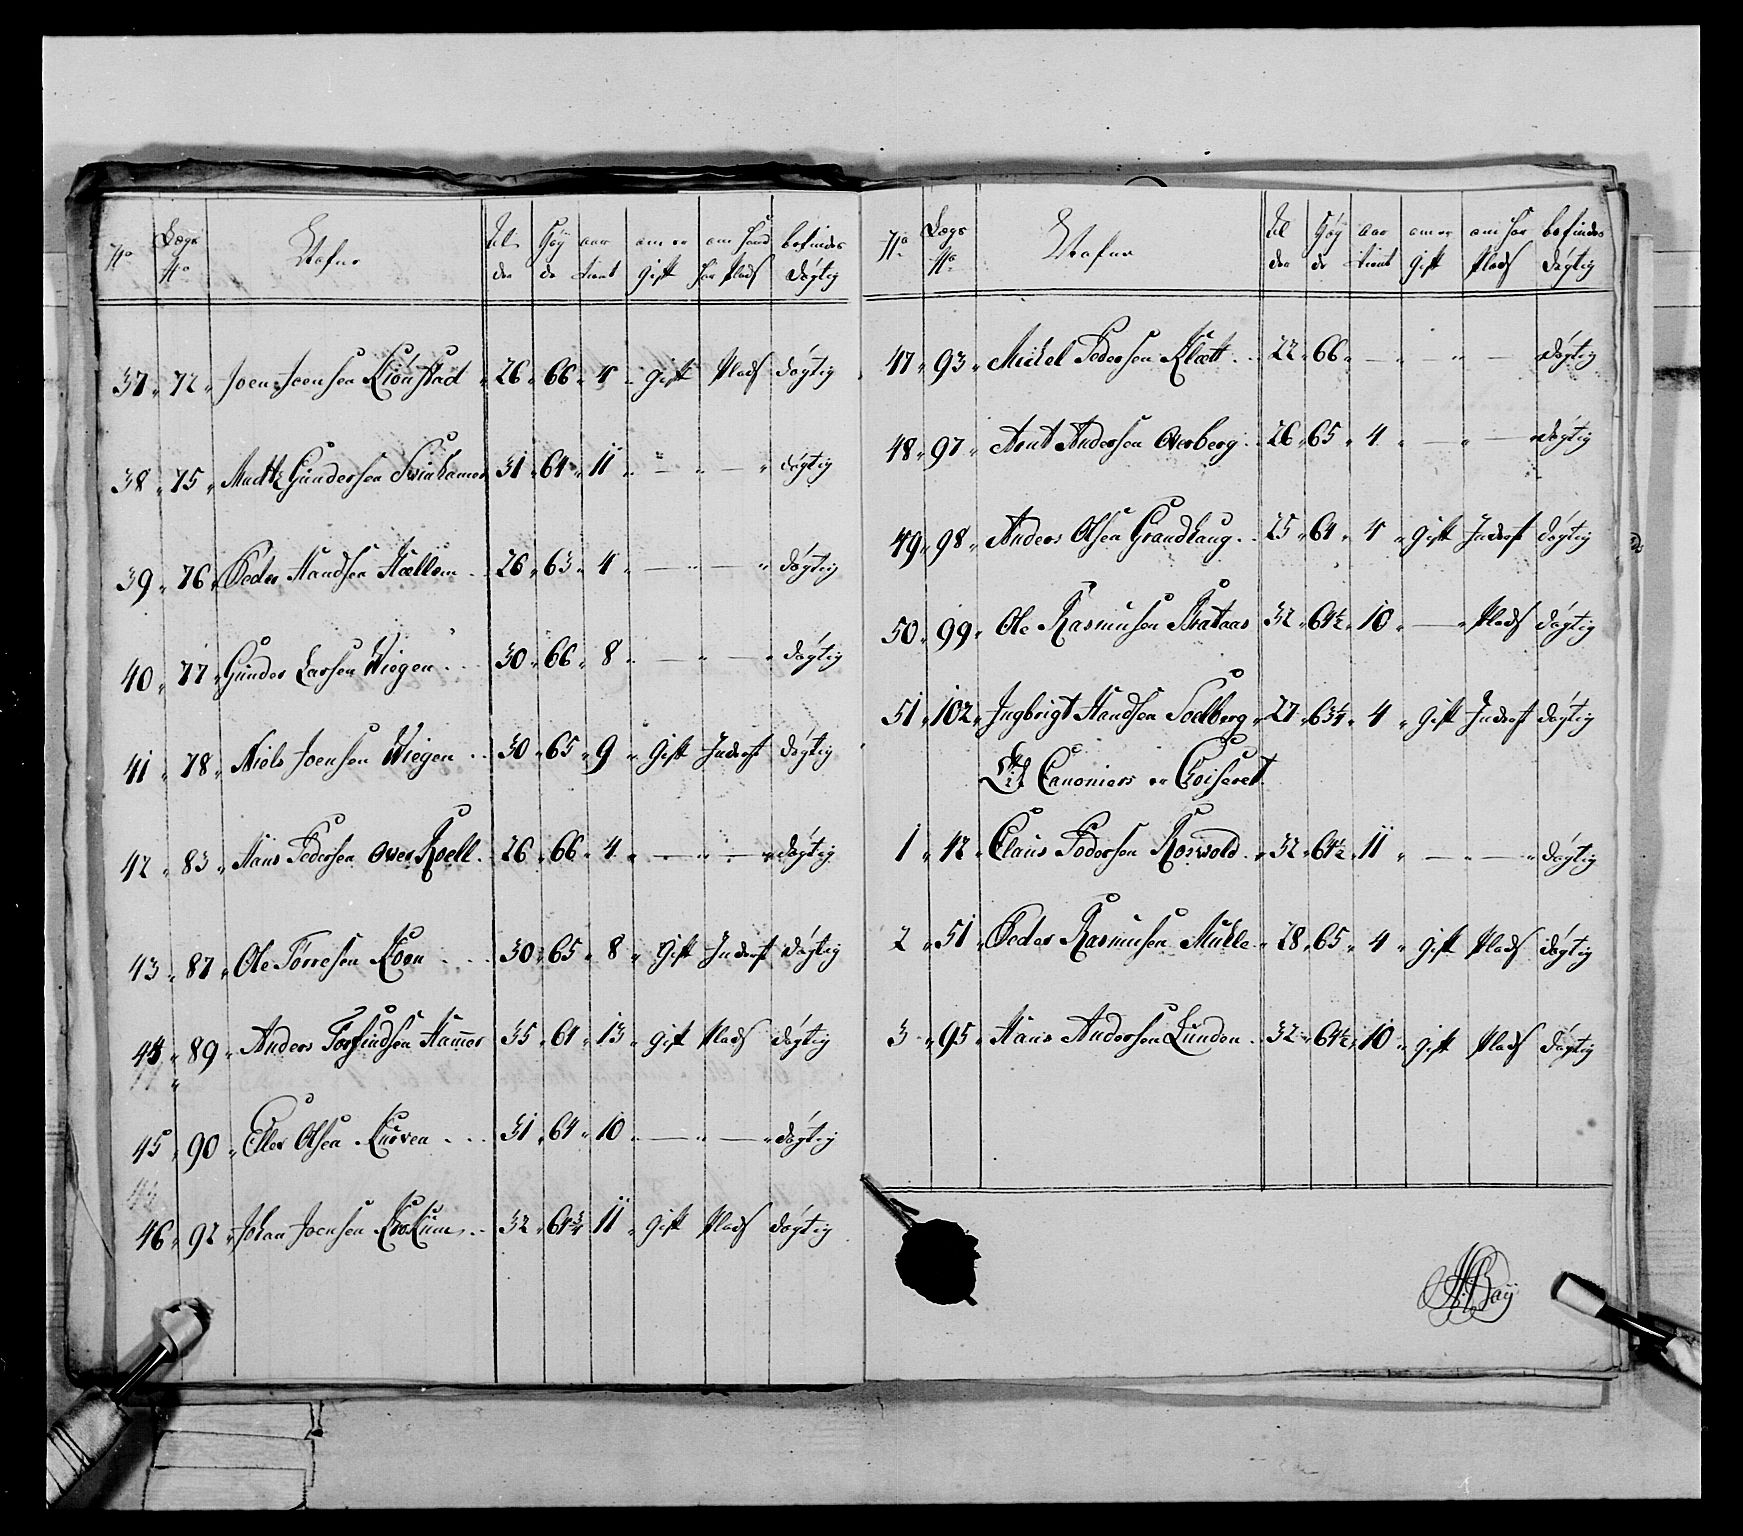 No Lægs No Nafne Al der Höy de aar tient om er Gift om hand har Plads befindes dögtig
37 72 Joen Joensen Kiönstad 26 66 4 gift Plads dögtig
38 75 Madtz Gundersen Svinhamer 31 64 11 " — " — " dögtig
39 76 Peder Handsen Hællem 26 63 4 " — " — " dögtig
40 77 Gunder Larsen Wiegen 30 66 8 " — " — " dögtig
41 78 Niels Joensen Wiegen 30 65 9 Gift Inderst dögtig
42 83 Hans Pedersen Over Koell 26 66 4 " — " — " dögtig
43 87 Ole Törresen Moen 30 65 8 Gift Inderst dögtig
44 89 Anders Torfindsen Hammer 35 64 13 gift Plads dögtig
45 90 Eller Olsen Kurven 31 64 10 " — " — " dögtig
46 92 Johan Joensen Kroknum 32 64¾ 11 Gift Plads dögtig
No Lægs No Nafne Al der Höy de aar tient om er Gift om har Plads befindes dögtig
47 93 Michel Pedersen Klætt 22 66 — " " — dögtig
48 97 Arnt Andersen Overberg 26 65 4 " — " — " dögtig
49 98 Anders Olsen Grandhaug 25 64 4 gift Inderst dögtig
50 99 Ole Rasmusen Brataas 32 64½ 10 " — " Plads dögtig
51 102 Ingbrigt Handsen Soelberg 27 63¼ 4 gift Inderst dögtig
Til Canoniers er Choiseret
1 42 Claus Pedersen Roswold 32 64½ 11 " — " — " dögtig
2 51 Peder Rasmusen Muhle 28 65 4 gift Plads dögtig
3 95 Hans Andersen Lunden 32 64½ 10 gift Plads dögtig
Baÿ